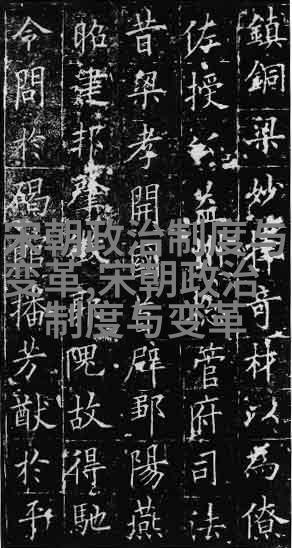 鎮銅梁妙擇奇材以為僚
佐授益州管府司法
昔梁孝開國辟鄒陽燕
昭建邦肇隗故得馳
令問於碣館播芳猷於平
宋朝政治制度与
变革,宋朝政治
制度与变革